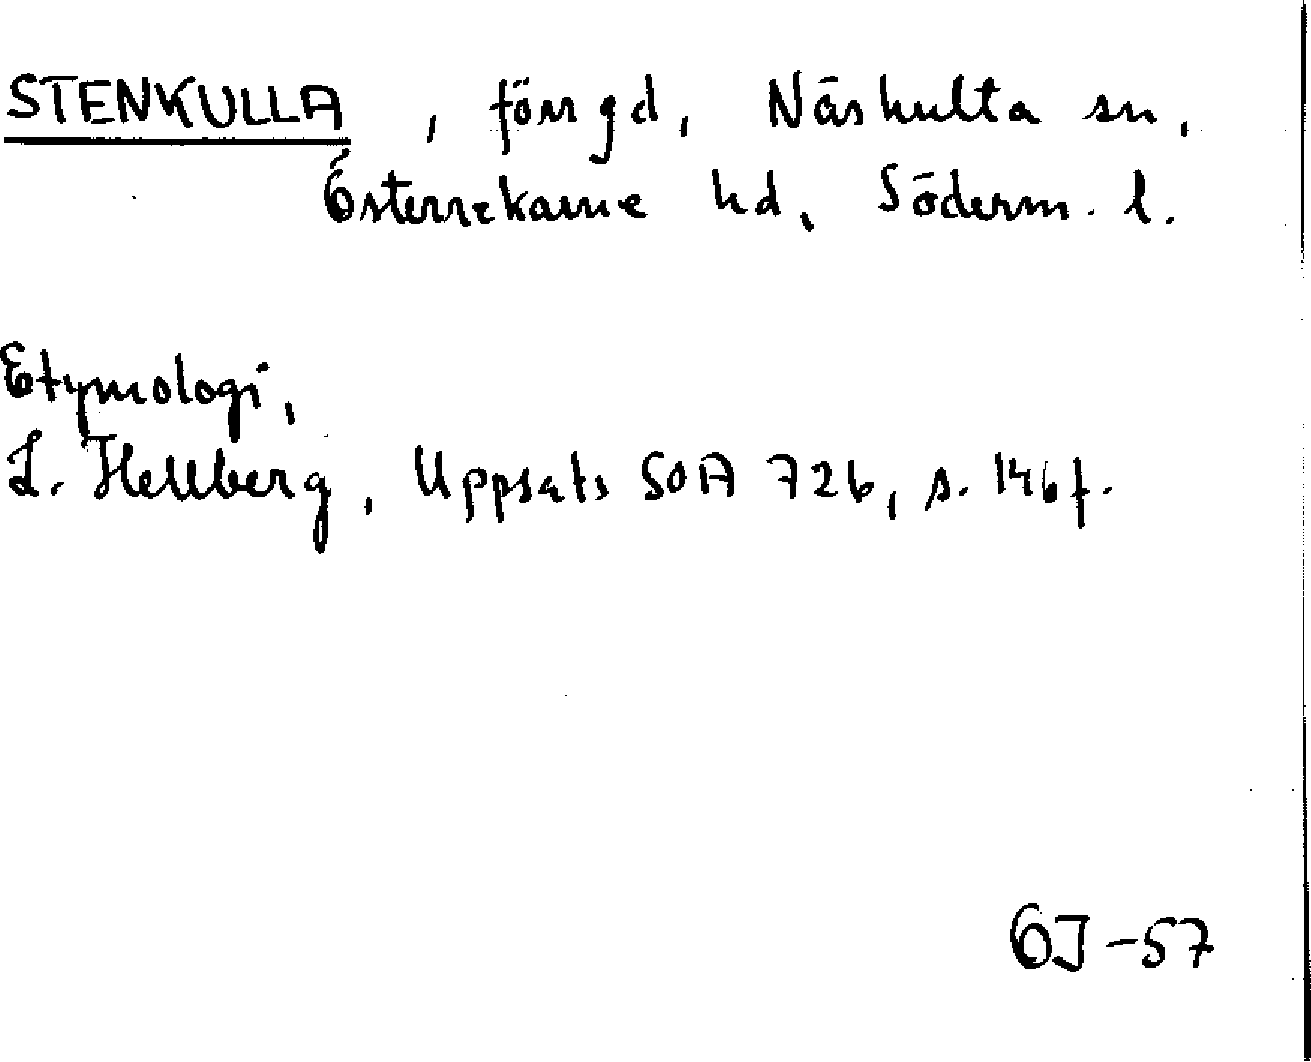 STENKULLA, förs gd, Näshulta sn,
Österrekarne hd, Söderm. l.
Etymologi,
L. Hellberg, Uppsats SOA 726, s. 146 f.
GJ-57